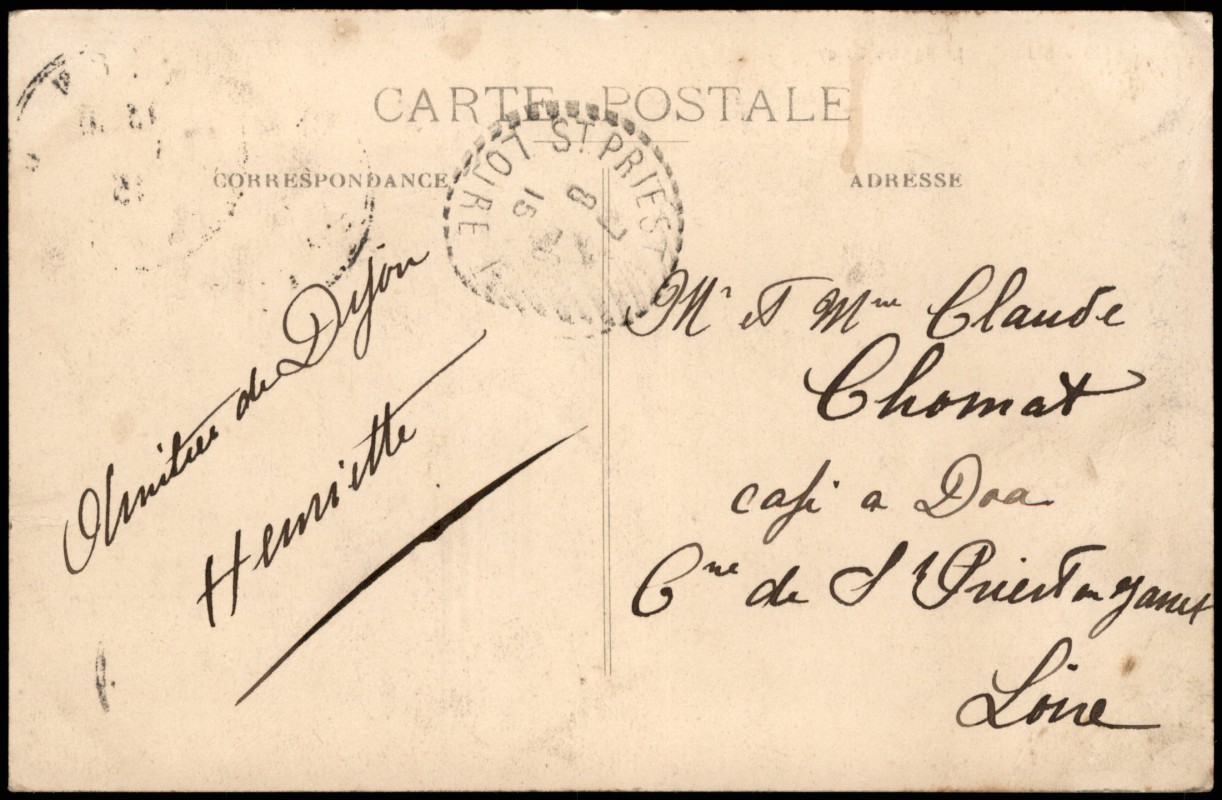 CARTE POSTALE
CORRESPONDANCE
ADRESSE
ST PRIEST
LOIRE
8-7
15
Amitiés de Dijon
Henriette
Mr et Mme Claude
Chomat
café a Doa
Cne de St Priest en Jarret
Loire